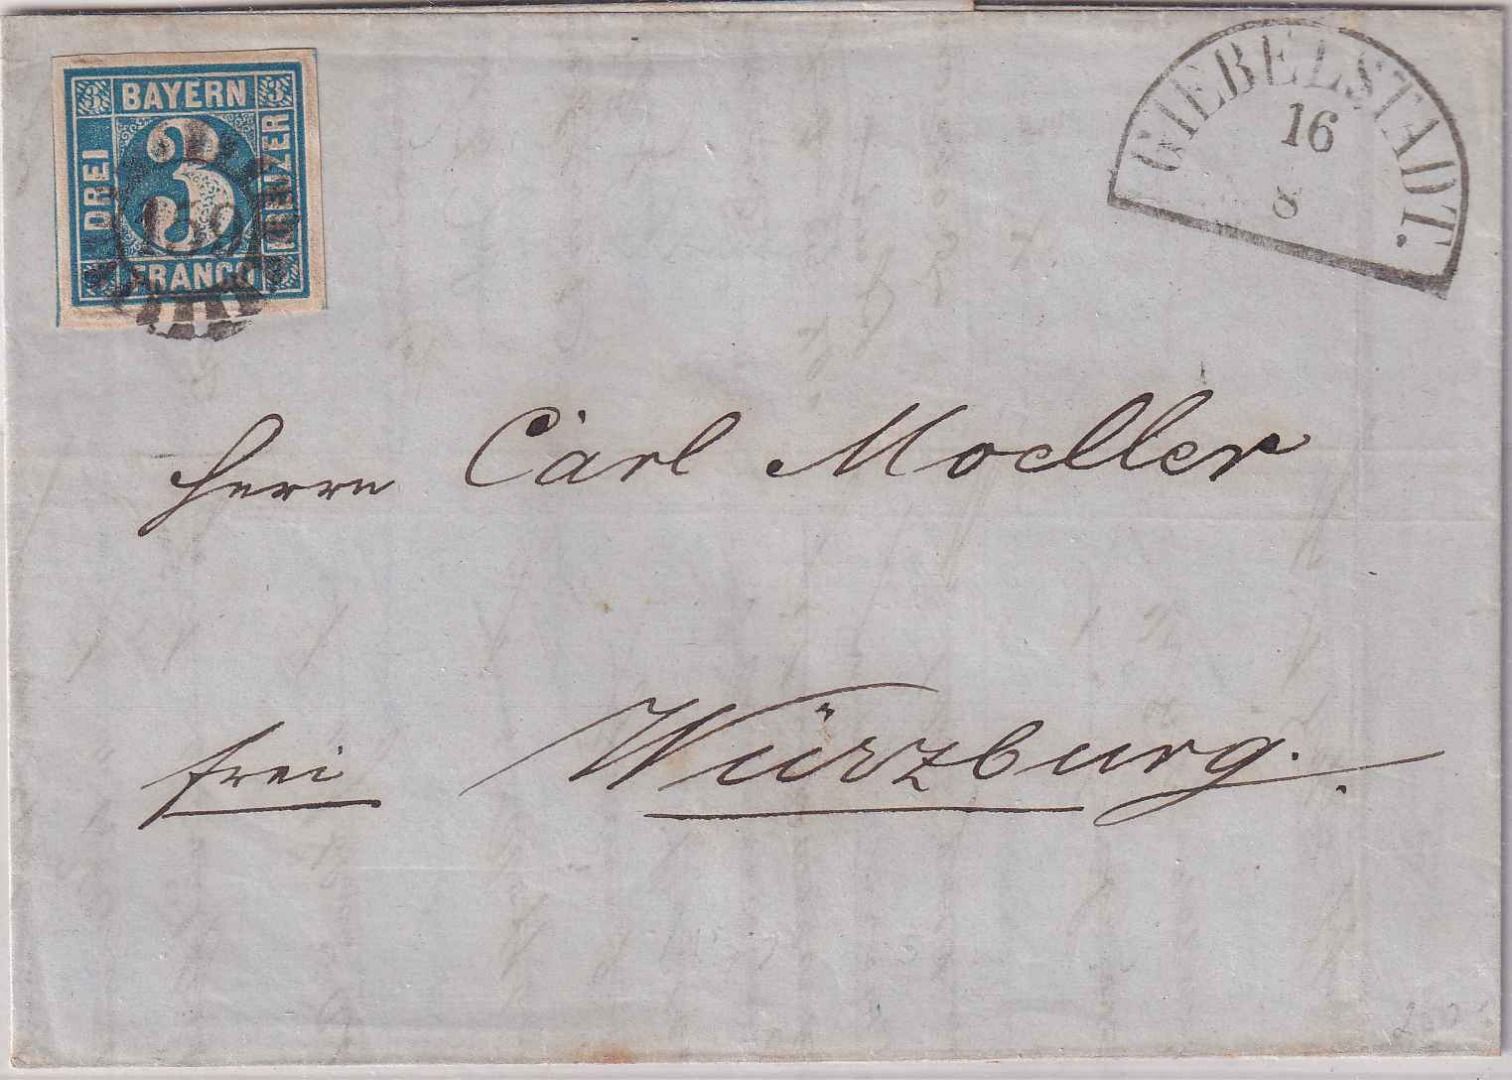 3 BAYERN 3
DREI
3
KREUZER
FRANCO
GIEBELSTADT.
16
8
Herrn Carl Moeller
frei Würzburg.